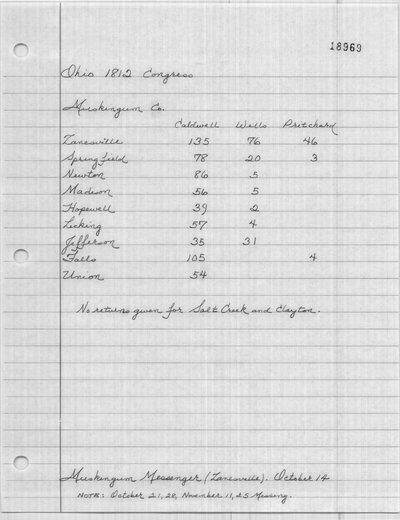 18969
Ohio 1812 Congress
Muskingum Co.
Caldwell Wells Pritchard
Zanesville 135 76 46
Springfield 78 20 3
Newton 86 5
Madison 56 5
Hopewell 39 2
Licking 57 4
Jefferson 35 31
Falls 105 4
Union 54
No returns given for Salt Creek and Clayton.
Muskingum Messenger (Zanesville). October 14
NOTE: October 21, 28, November 11, 25 Missing.